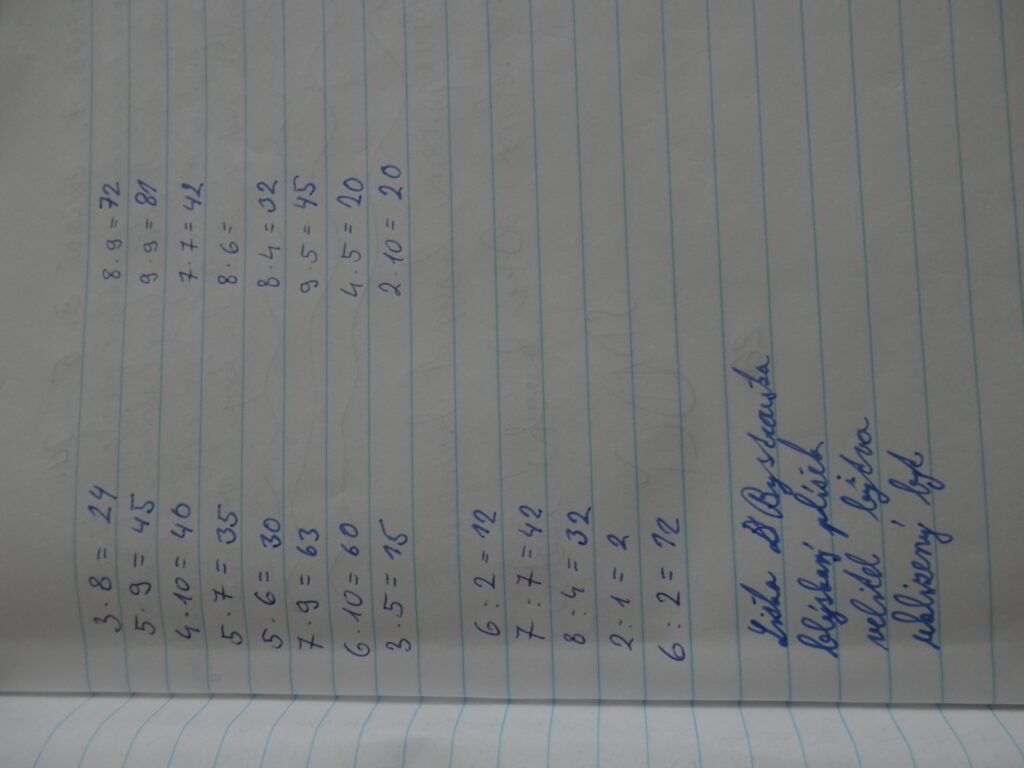 3 · 8 = 24
5 · 9 = 45
4 · 10 = 40
5 · 7 = 35
5 · 6 = 30
7 · 9 = 63
6 · 10 = 60
3 · 5 = 15
8 · 9 = 72
9 · 9 = 81
7 · 7 = 42
8 · 6 =
8 · 4 = 32
9 · 5 = 45
4 · 5 = 20
2 · 10 = 20
6 : 2 = 12
7 : 7 = 42
8 : 4 = 32
2 : 1 = 2
6 : 2 = 12
Liška Bystrouška
blýskaný plíšek
velitel lýdva
uklizený byt